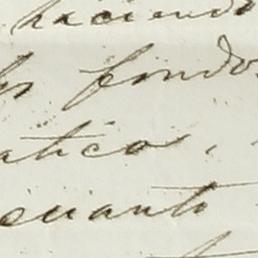 haciendo
fondos
atica,
cuanto